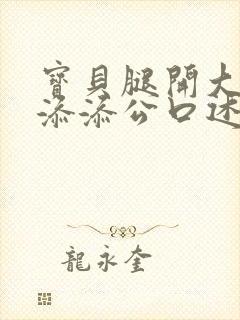 寶貝腿開大
添添公口述
龍永奎